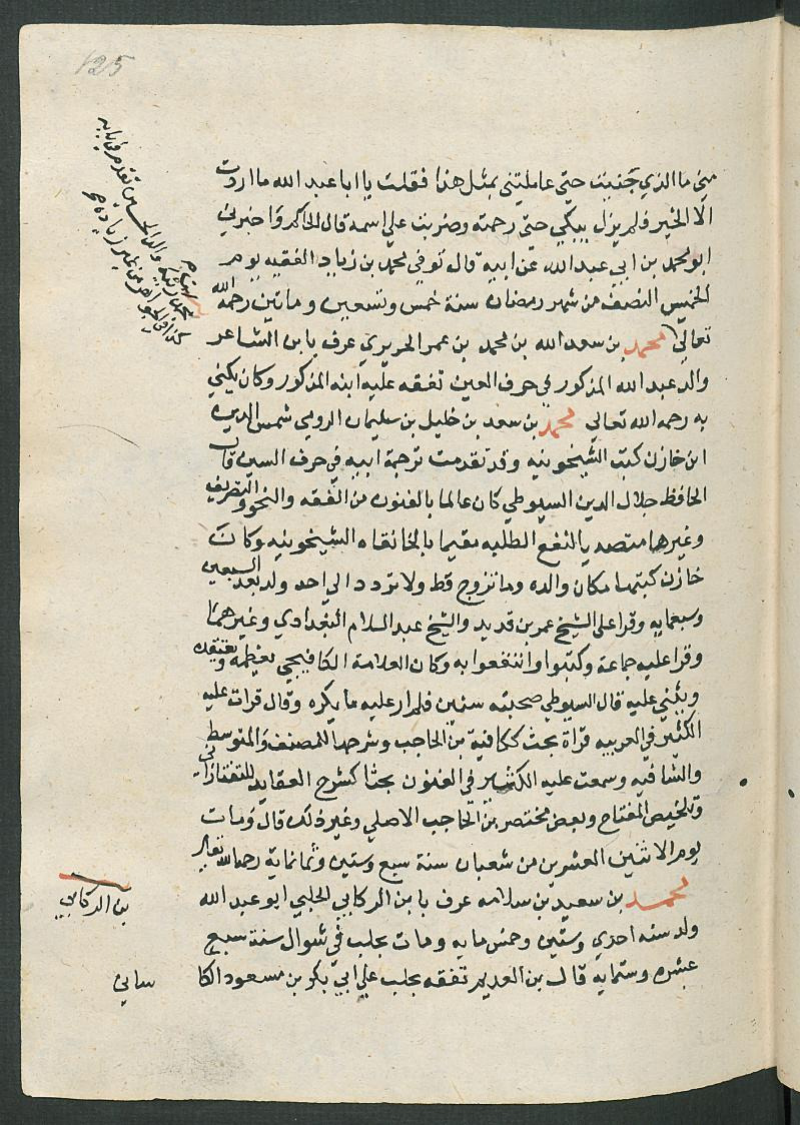 125
مني ما الذي جنيت حتي عاملتني بمثل هذا فقلت يا ابا عبد الله ما اردت
الا الخير فلم يزل يبكي حتى رحمته وضربت علي اسمه قال الحاكم واخبرني
ابو محمد بن ابي عبد الله عن ابيه قال توفي محمد بن زياد الفقيه يوم
الخميس النصف من شهر رمضان سنة خمس وتسعين وماتين رحمه الله
تعالي محمد بن سعد الله بن محمد بن عمر الحريري عرف بابن الشاعر
والد عبد الله المذكور في حرف العين تفقه عليه ابنه المذكور وكان يكني
به رحمه الله تعالي محمد بن سعد بن خليل بن سليمان الرومي شمس الدين
ابن خازن كتب الشيخونيه وقد تقدمت ترجمة ابيه في حرف السين قال
الحافظ جلال الدين السيوطي كان عالما بالفنون من الفقه والنحو والتصريف
وغيرها متصديا لنفع الطلبه مقيما بالخانقاه الشيخونيه وكان
خازن كتبها مكان والده وما تزوج قط ولا تردد الي احد ولد بعد السبعين
وسبعمايه وقرا علي الشيخ عمر بن قديد والشيخ عبد السلام البغدادي وغيرهما
وقرا عليه جماعة وكتبوا وانتفعوا به وكان العلامة الكافيجي يعظمه ويعتقده
ويثني عليه قال السيوطي صحبته سنين فلم ار عليه ما يكره وقال قرات عليه
الكثير في العربيه قراة بحث ككافية بن الحاجب وشرحها للمصنف والمتوسط
والشافيه وسمعت عليه الكثير في الفنون بحثا كشرح العقايد للتفتازاني
وتلخيص المفتاح وبعض مختصر بن الحاجب الاصلي وغير ذلك قال ومات
يوم الاثنين العشرين من شعبان سنة سبع وستين وثمانماية رحمه الله تعالي
محمد بن سعيد بن سلامه عرف بابن الركابي الحلبي ابو عبد الله
ولد سنه احدي وستين وخمس مايه ومات بحلب في شوال سنة سبع
عشره وستمايه قال بن العديم تفقه بحلب علي ابي بكر بن مسعود الكا
بن الركابي
ساني